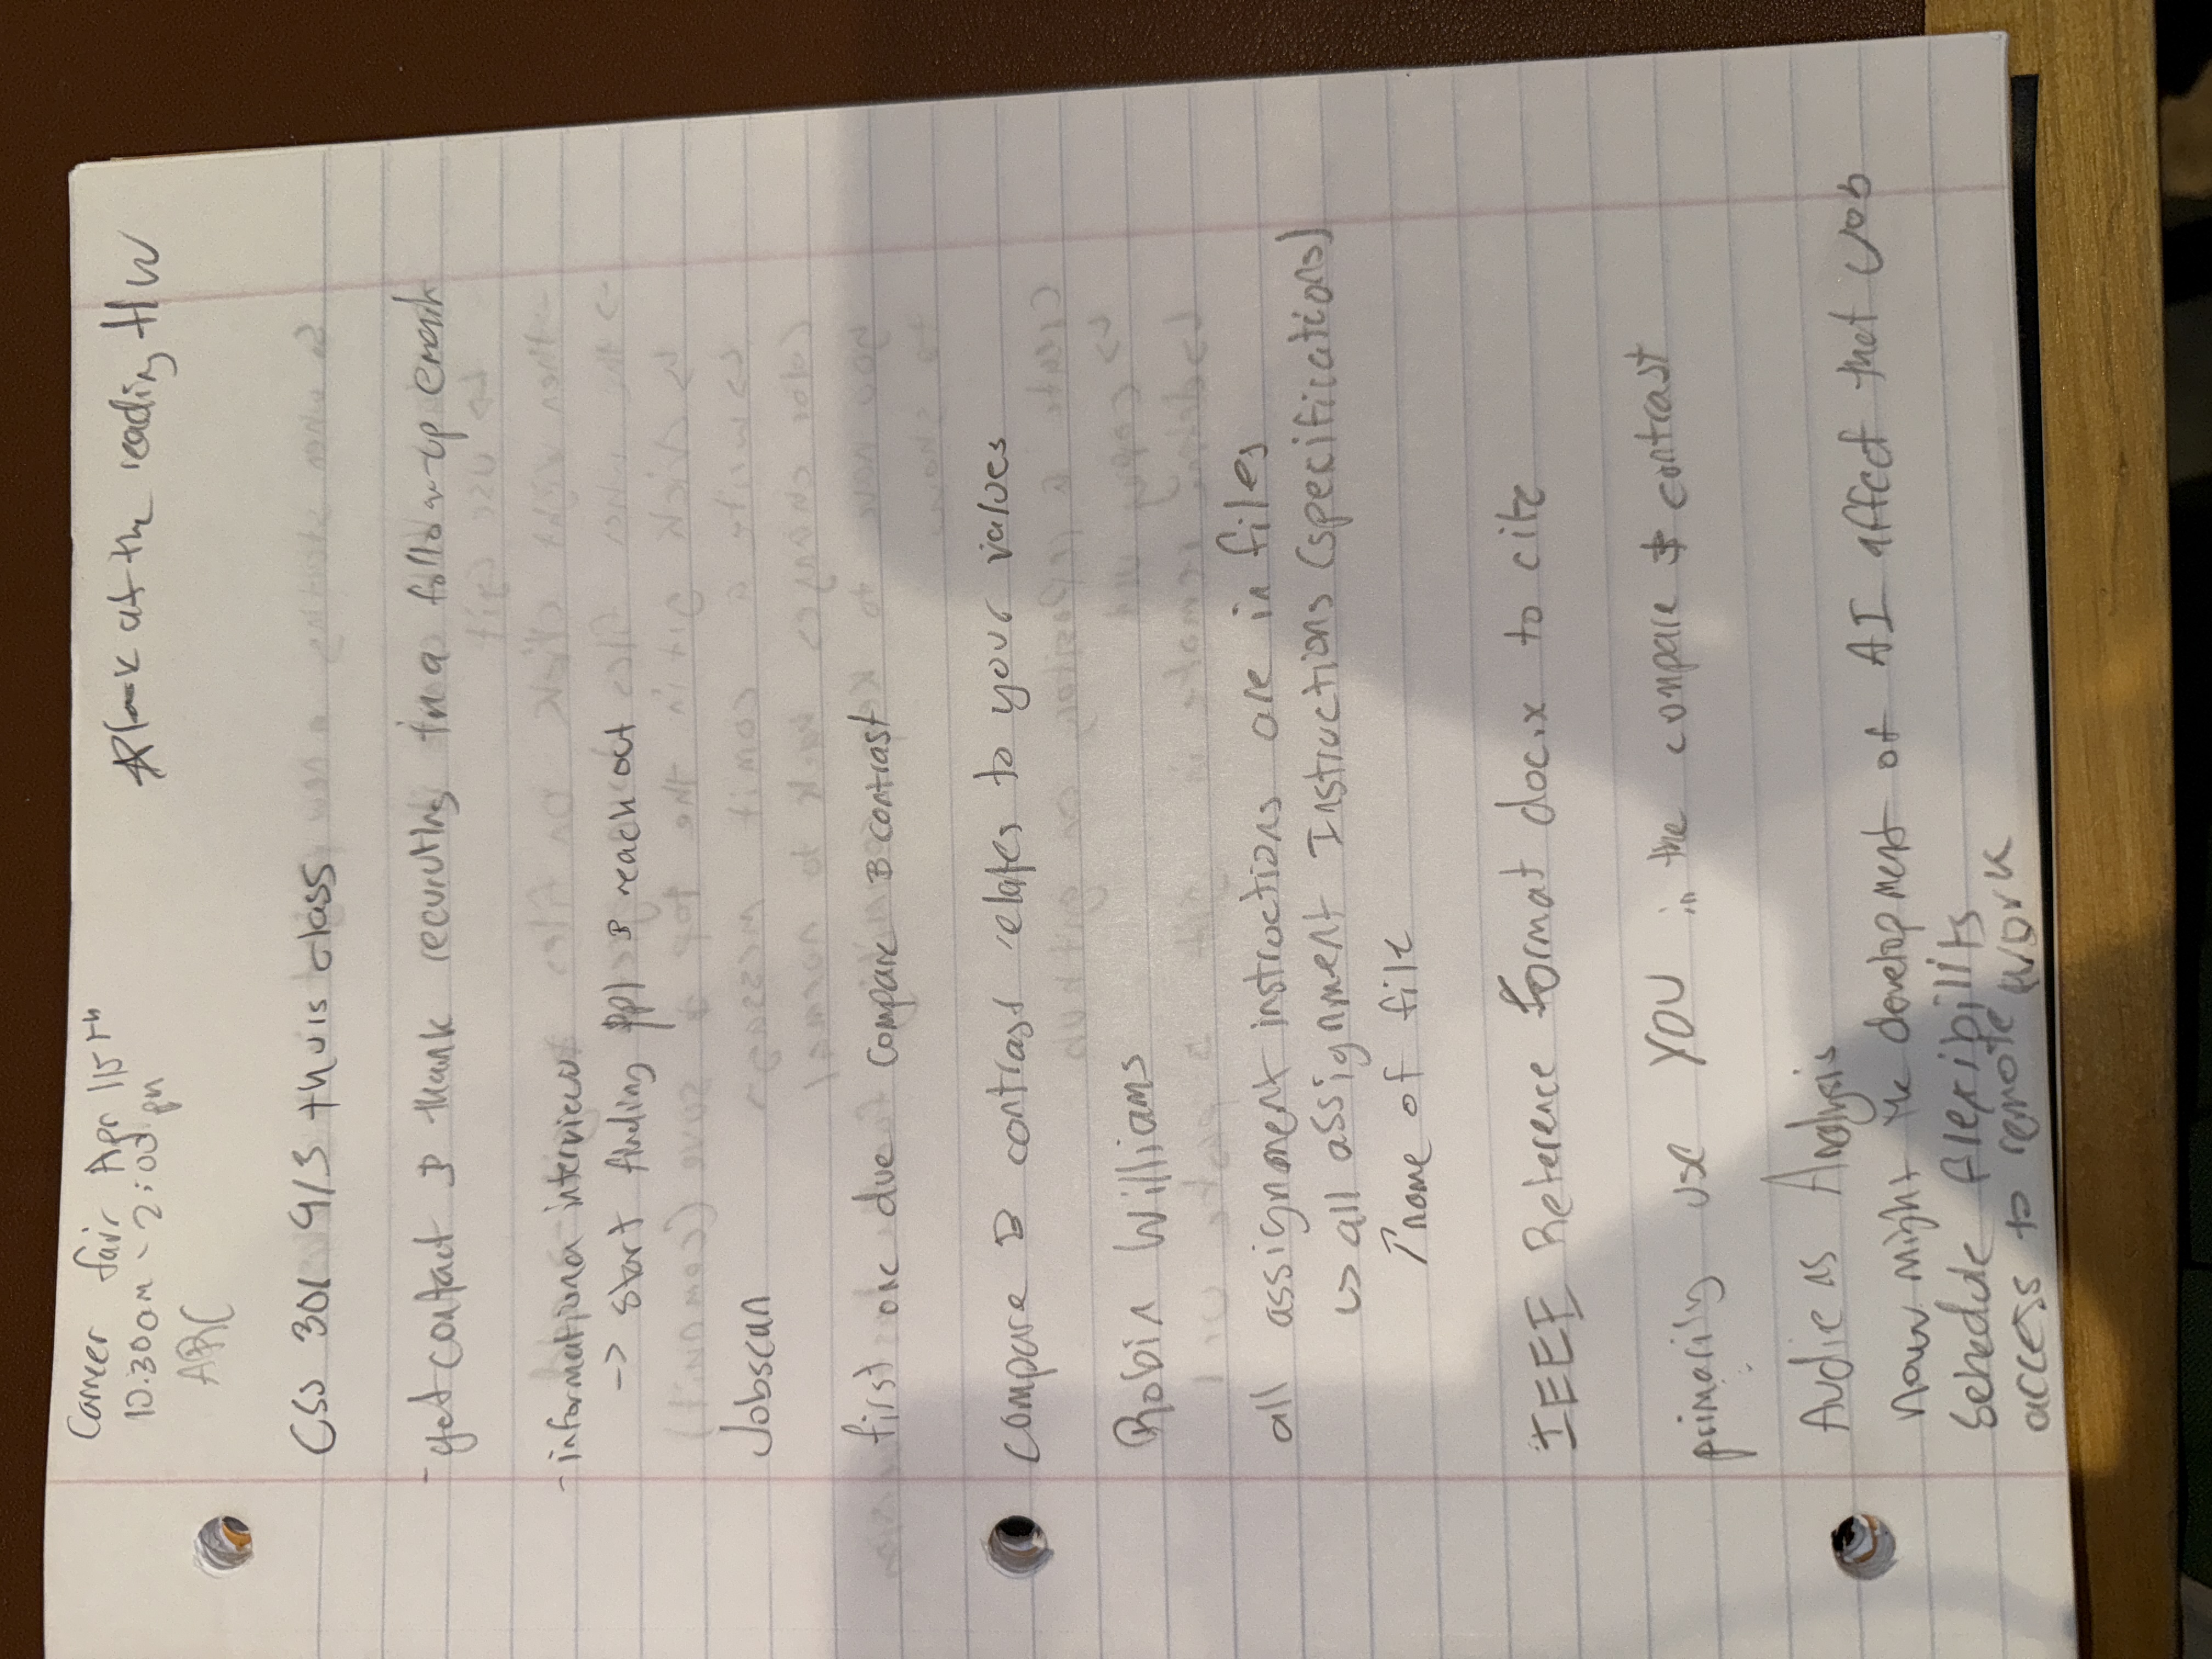 Career fair Apr 15th
10:30am - 2:00pm
ARC
☆look at the reading HW
CSS 301 9/3 thuis class
- get contact & thank recuruting in a follow-up email
- informationa interview
-> Start finding ppl & reach out
Jobscan
first one due compare & contrast
compare & contrast relates to your values
Robin Williams
all assignment instructions are in files
↳ all assignment Instructions (specifications)
↑ name of file
IEEE Reference Format doc.x to cite
primarily use YOU in the compare & contrast
Audiens Analysis
how might the development of AI affect that Job
Schedule flexibility
access to remote work